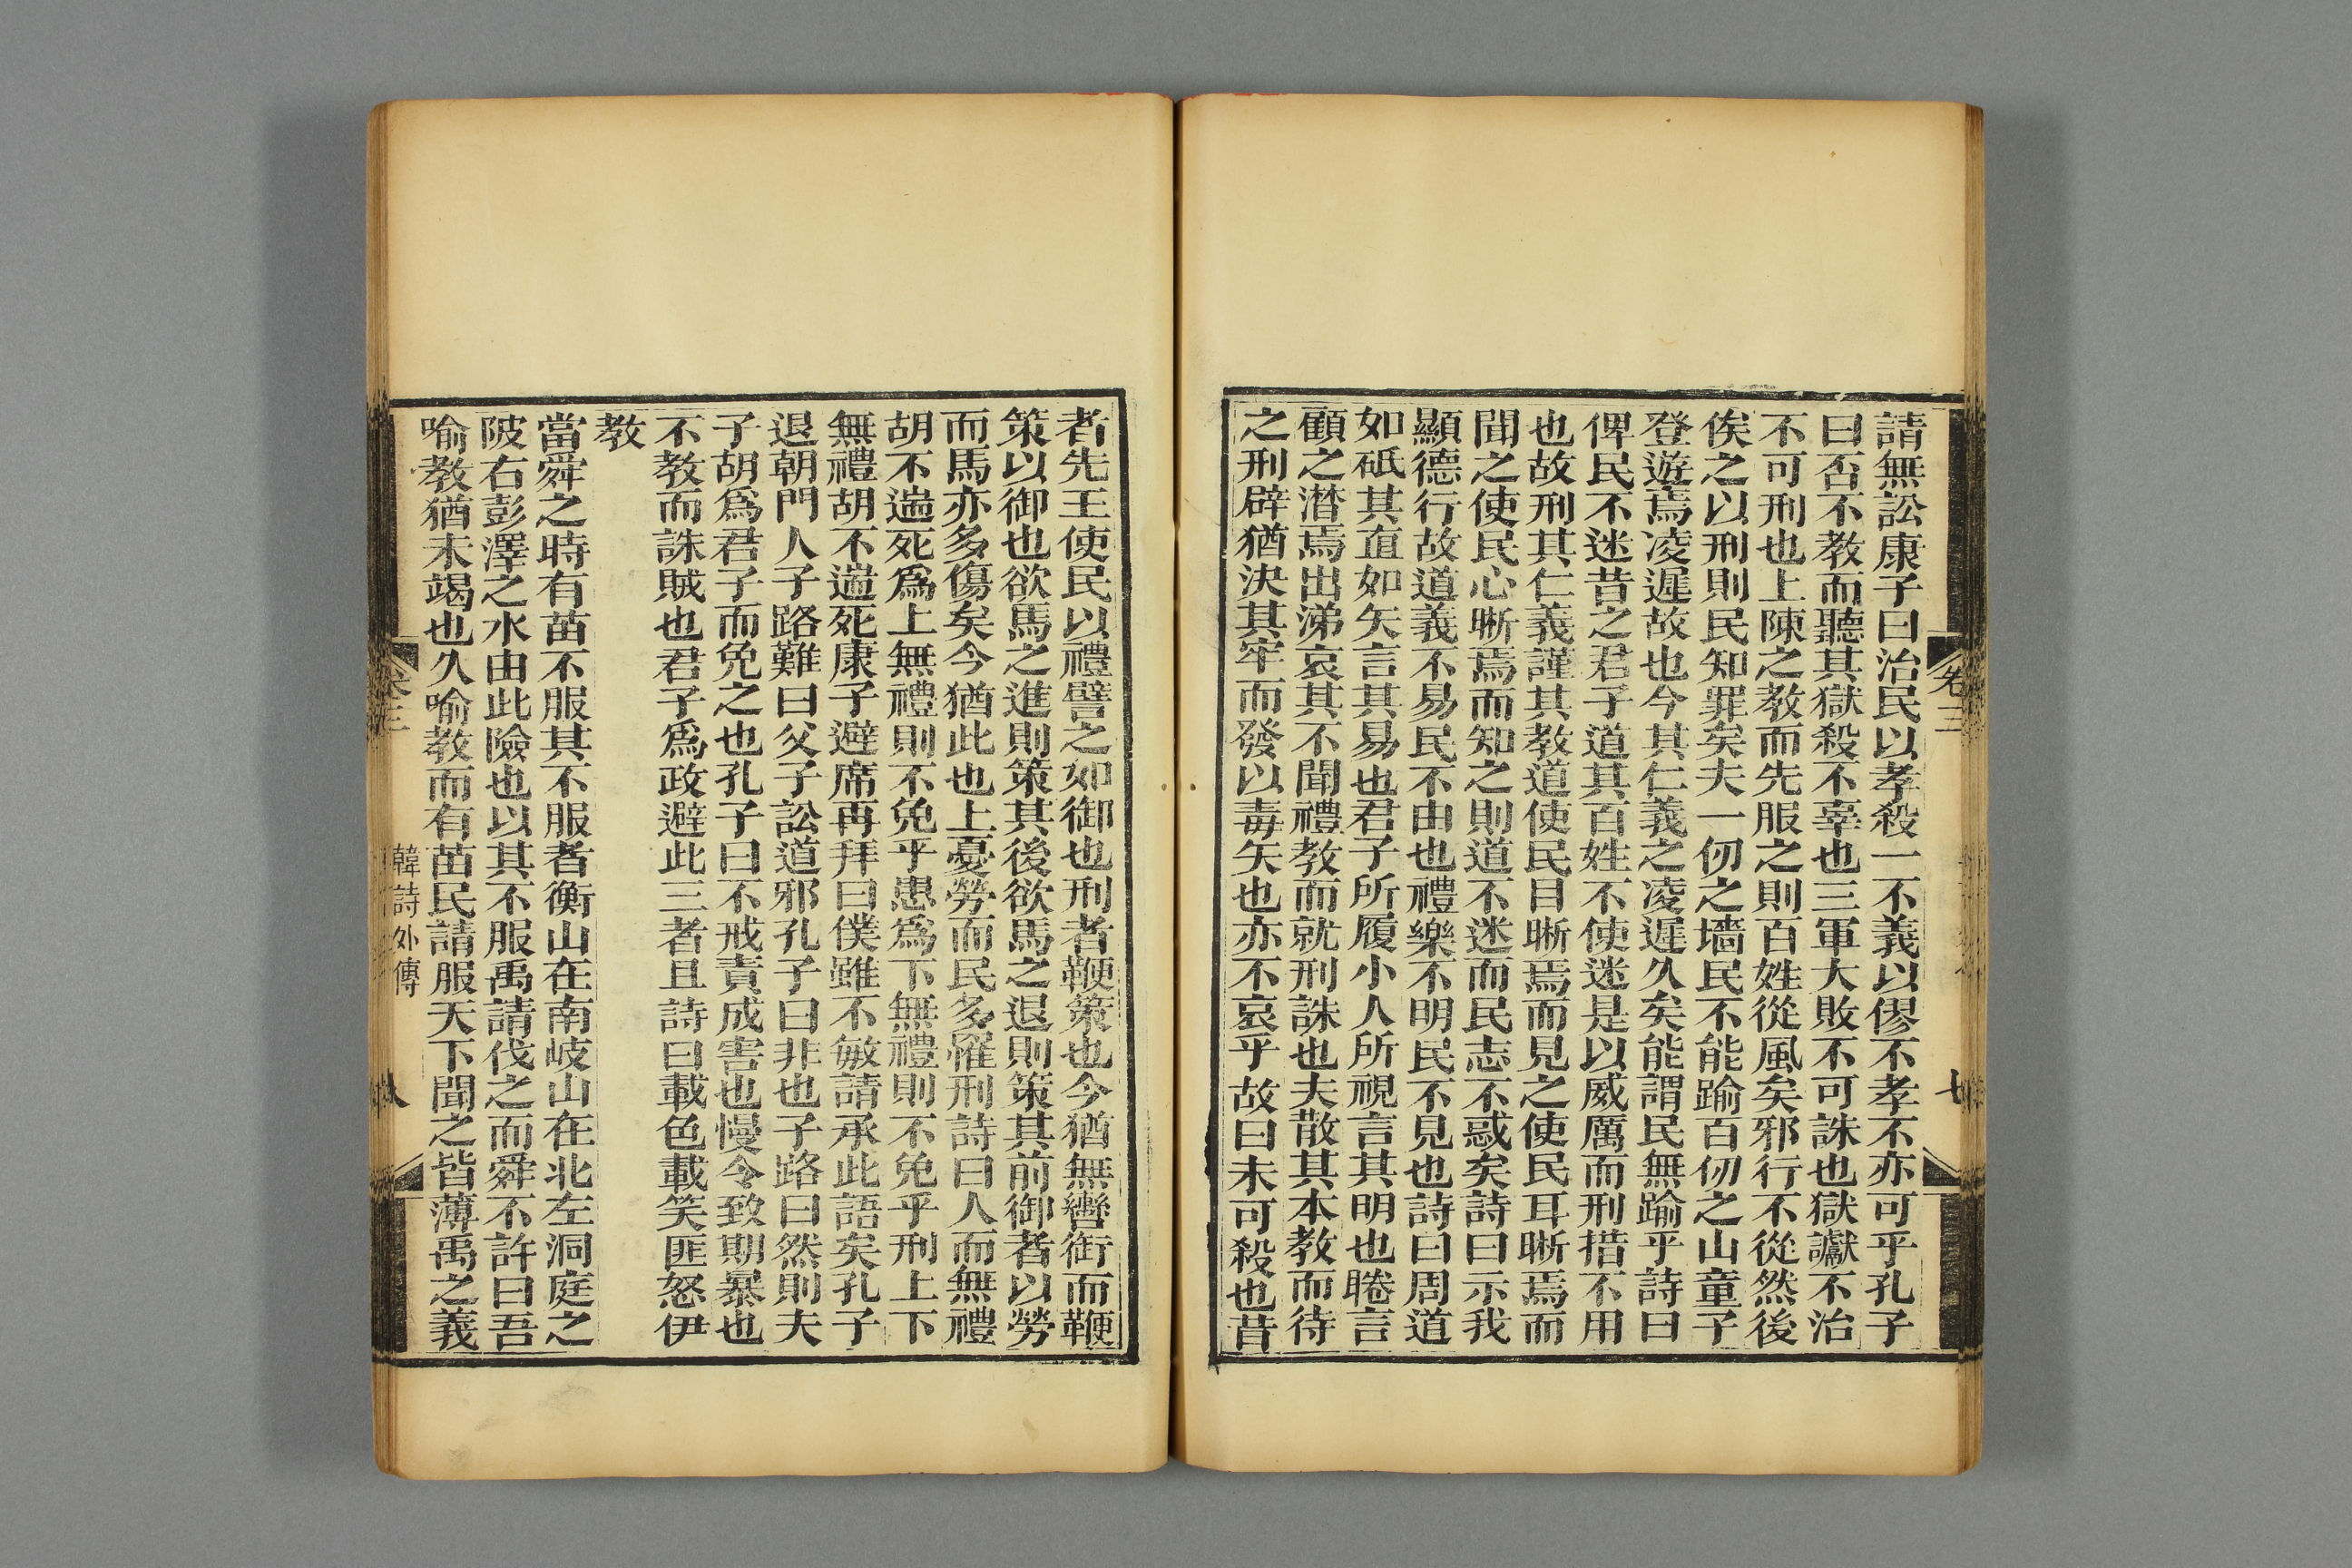 請無訟康子曰治民以孝殺一不義以僇不孝不亦可乎孔子
曰否不教而聽其獄殺不辜也三軍大敗不可誅也獄讞不治
不可刑也上陳之教而先服之則百姓從風矣邪行不從然後
俟之以刑則民知罪矣夫一仞之墻民不能踰百仞之山童子
登遊焉凌遲故也今其仁義之凌遲久矣能謂民無踰乎詩曰
俾民不迷昔之君子道其百姓不使迷是以威厲而刑措不用
也故刑其仁義謹其教道使民目晰焉而見之使民耳晰焉而
聞之使民心晰焉而知之則道不迷而民志不惑矣詩曰示我
顯德行故道義不易民不由也禮樂不明民不見也詩曰周道
如砥其直如矢言其易也君子所履小人所視言其明也睠言
顧之潸焉出涕哀其不聞禮教而就刑誅也夫散其本教而待
之刑辟猶決其牢而發以毒矢也亦不哀乎故曰未可殺也昔
卷三
七
者先王使民以禮譬之如御也刑者鞭策也今猶無轡銜而鞭
策以御也欲馬之進則策其後欲馬之退則策其前御者以勞
而馬亦多傷矣今猶此也上憂勞而民多罹刑詩曰人而無禮
胡不遄死爲上無禮則不免乎患爲下無禮則不免乎刑上下
無禮胡不遄死康子避席再拜曰僕雖不敏請承此語矣孔子
退朝門人子路難曰父子訟道邪孔子曰非也子路曰然則夫
子胡爲君子而免之也孔子曰不戒責成害也慢令致期暴也
不教而誅賊也君子爲政避此三者且詩曰載色載笑匪怒伊
教
當舜之時有苗不服其不服者衡山在南岐山在北左洞庭之
陂右彭澤之水由此險也以其不服禹請伐之而舜不許曰吾
喻教猶未竭也久喻教而有苗民請服天下聞之皆薄禹之義
卷三
韓詩外傳
八